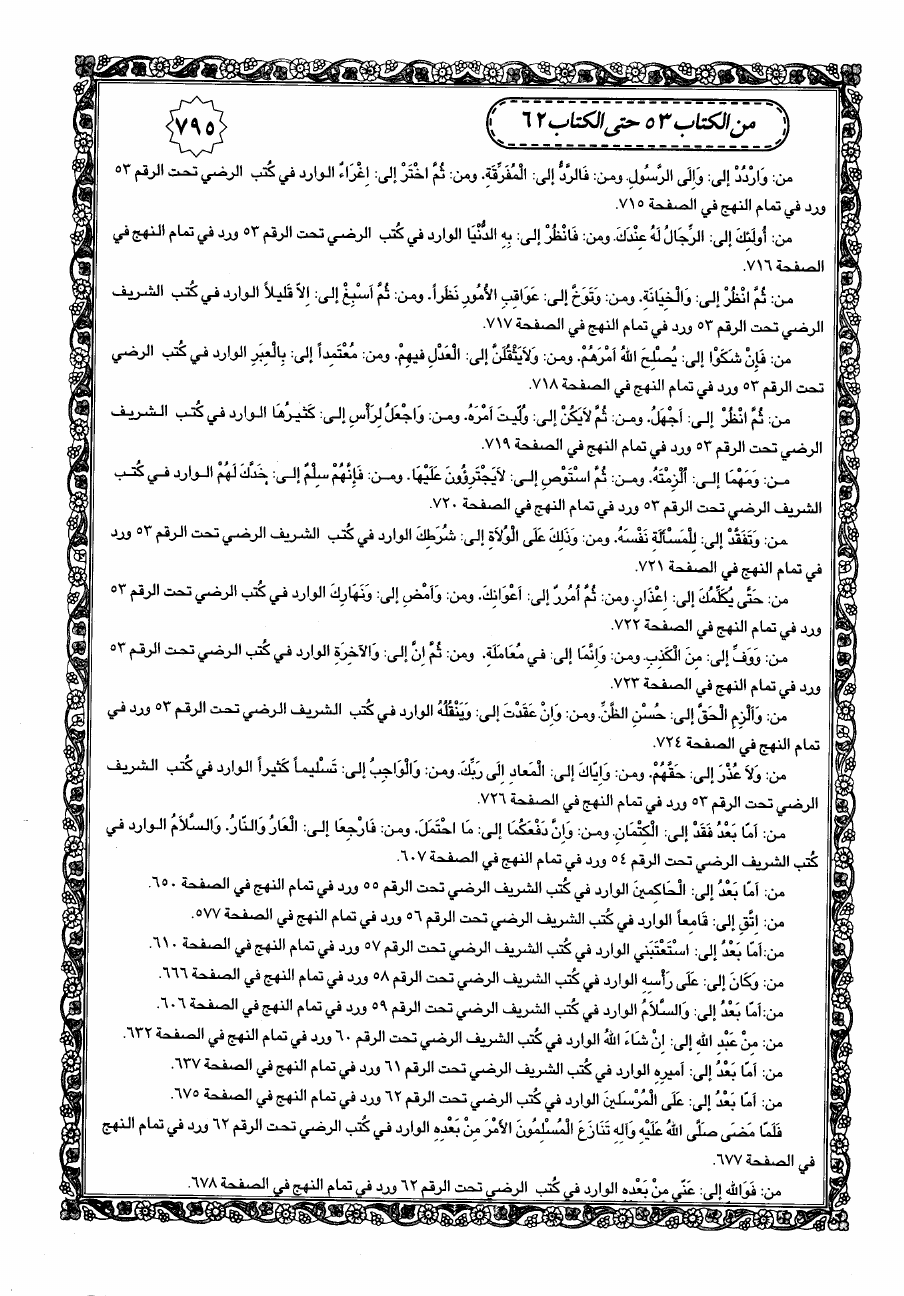 من الكتاب ٥٣ حتى الكتاب ٦٢
٧٩٥
من: وَارْدُدْ إلى: وَإِلَى الرَّسُولِ. ومن: فَالرَّدُّ إلى: الْمُفَرِّقَةِ. ومن: ثُمَّ اخْتَرْ إلى: إِغْرَاءٌ الوارد في كتب الرضي تحت الرقم ٥٣
ورد في تمام النهج في الصفحة ٧١٥.
من: أُولَئِكَ إلى: الرِّجَالُ لَهُ عِنْدَكَ. ومن: فَانْظُرْ إلى: بِهِ الدُّنْيَا الوارد في كُتب الرضي تحت الرقم ٥٣ ورد في تمام النهج في
الصفحة ٧١٦.
من: ثُمَّ انْظُرْ إلى: وَالْخِيَانَةِ. ومن: وَتَوَخَّ إلى: عَوَاقِبِ الأُمُورِ نَظَراً. ومن: ثُمَّ أَسْبِغْ إلى: إِلاَّ قَلِيلاً الوارد في كُتب الشريف
الرضي تحت الرقم ٥٣ ورد في تمام النهج في الصفحة ٧١٧.
من: فَإِنْ شَكَوْا إلى: يُصْلِحَ اللهُ أَمْرَهُمْ. ومن: وَلاَيَثْقُلَنَّ إلى: الْعَدْلِ فِيهِمْ. ومن: مُعْتَمِداً إلى: بِالْعِبَرِ الوارد في كُتب الرضي
تحت الرقم ٥٣ ورد في تمام النهج في الصفحة ٧١٨.
من: ثُمَّ انْظُرْ إلى: أَجْهَلُ. ومن: ثُمَّ لاَيَكُنْ إلى: وُلِّيتَ أَمْرَهُ. ومن: وَاجْعَلْ لِرَأْسِ إلى: كَثِيرُهَا الوارد في كُتب الشريف
الرضي تحت الرقم ٥٣ ورد في تمام النهج في الصفحة ٧١٩.
من: وَمَهْمَا إلى: أُلْزِمْتَهُ. ومن: ثُمَّ اسْتَوْصِ إلى: لاَيَجْتَرِؤُونَ عَلَيْهَا. ومن: فَإِنَّهُمْ سِلْمٌ إلى: خَدَّكَ لَهُمْ الوارد في كُتب
الشريف الرضي تحت الرقم ٥٣ ورد في تمام النهج في الصفحة ٧٢٠.
من: وَتَفَقَّدْ إلى: لِلْمَسْأَلَةِ نَفْسَهُ. ومن: وَذَلِكَ عَلَى الْوُلاَةِ إلى: شُرَطِكَ الوارد في كُتب الشريف الرضي تحت الرقم ٥٣ ورد
في تمام النهج في الصفحة ٧٢١.
من: حَتَّى يُكَلِّمَكَ إلى: إِعْذَارٍ. ومن: ثُمَّ أُمُورٌ إلى: أَعْوَانِكَ. ومن: وَأَمْضِ إلى: وَنَهَارِكَ الوارد في كُتب الرضي تحت الرقم ٥٣
ورد في تمام النهج في الصفحة ٧٢٢.
من: وَوَفِّ إلى: مِنَ الْكَذِبِ. ومن: وَإِنَّمَا إلى: فِي مُعَامَلَةٍ. ومن: ثُمَّ إِنَّ إلى: وَالآخِرَةِ الوارد في كُتب الرضي تحت الرقم ٥٣
ورد في تمام النهج في الصفحة ٧٢٣.
من: وَأَلْزِمِ الْحَقَّ إلى: حُسْنِ الظَّنِّ. ومن: وَإِنْ عَقَدْتَ إلى: وَيَنْقُلُهُ الوارد في كُتب الشريف الرضي تحت الرقم ٥٣ ورد في
تمام النهج في الصفحة ٧٢٤.
من: وَلاَ عُذْرَ إلى: حَقَّهُمْ. ومن: وَإِيَّاكَ إلى: الْمَعَادِ إِلَى رَبِّكَ. ومن: وَالْوَاجِبُ إلى: تَسْلِيماً كَثِيراً الوارد في كُتب الشريف
الرضي تحت الرقم ٥٣ ورد في تمام النهج في الصفحة ٧٢٦.
من: أَمَّا بَعْدُ فَقَدْ إلى: الْكِتْمَانِ. ومن: وَإِنَّ دَفْعَكُمَا إلى: مَا احْتَمَلَ. ومن: فَارْجِعَا إلى: الْعَارُ وَالنَّارُ. وَالسَّلاَمُ الوارد في
كُتب الشريف الرضي تحت الرقم ٥٤ ورد في تمام النهج في الصفحة ٦٠٧.
من: أَمَّا بَعْدُ إلى: الْحَاكِمِينَ الوارد في كُتب الشريف الرضي تحت الرقم ٥٥ ورد في تمام النهج في الصفحة ٦٥٠.
من: اتَّقِ إلى: قَامِعاً الوارد في كُتب الشريف الرضي تحت الرقم ٥٦ ورد في تمام النهج في الصفحة ٥٧٧.
من: أَمَّا بَعْدُ إلى: اسْتَعْتَبَنِي الوارد في كُتب الشريف الرضي تحت الرقم ٥٧ ورد في تمام النهج في الصفحة ٦١٠.
من: وَكَانَ إلى: عَلَى رَأْسِهِ الوارد في كُتب الشريف الرضي تحت الرقم ٥٨ ورد في تمام النهج في الصفحة ٦٦٦.
من: أَمَّا بَعْدُ إلى: وَالسَّلاَمُ الوارد في كُتب الشريف الرضي تحت الرقم ٥٩ ورد في تمام النهج في الصفحة ٦٠٦.
من: مِنْ عَبْدِ اللهِ إلى: إِنْ شَاءَ اللهُ الوارد في كُتب الشريف الرضي تحت الرقم ٦٠ ورد في تمام النهج في الصفحة ٦٣٢.
من: أَمَّا بَعْدُ إلى: أَمِيرِهِ الوارد في كُتب الشريف الرضي تحت الرقم ٦١ ورد في تمام النهج في الصفحة ٦٣٧.
من: أَمَّا بَعْدُ إلى: عَلَى الْمُرْسَلِينَ الوارد في كُتب الشريف الرضي تحت الرقم ٦٢ ورد في تمام النهج في الصفحة ٦٧٥.
فَلَمَّا مَضَى صَلَّى اللهُ عَلَيْهِ وَآلِهِ تَنَازَعَ الْمُسْلِمُونَ الأَمْرَ مِنْ بَعْدِهِ الوارد في كُتب الرضي تحت الرقم ٦٢ ورد في تمام النهج
في الصفحة ٦٧٧.
من: فَوَاللهِ إلى: عَنِّي مِنْ بَعْدِهِ الوارد في كُتب الرضي تحت الرقم ٦٢ ورد في تمام النهج في الصفحة ٦٧٨.